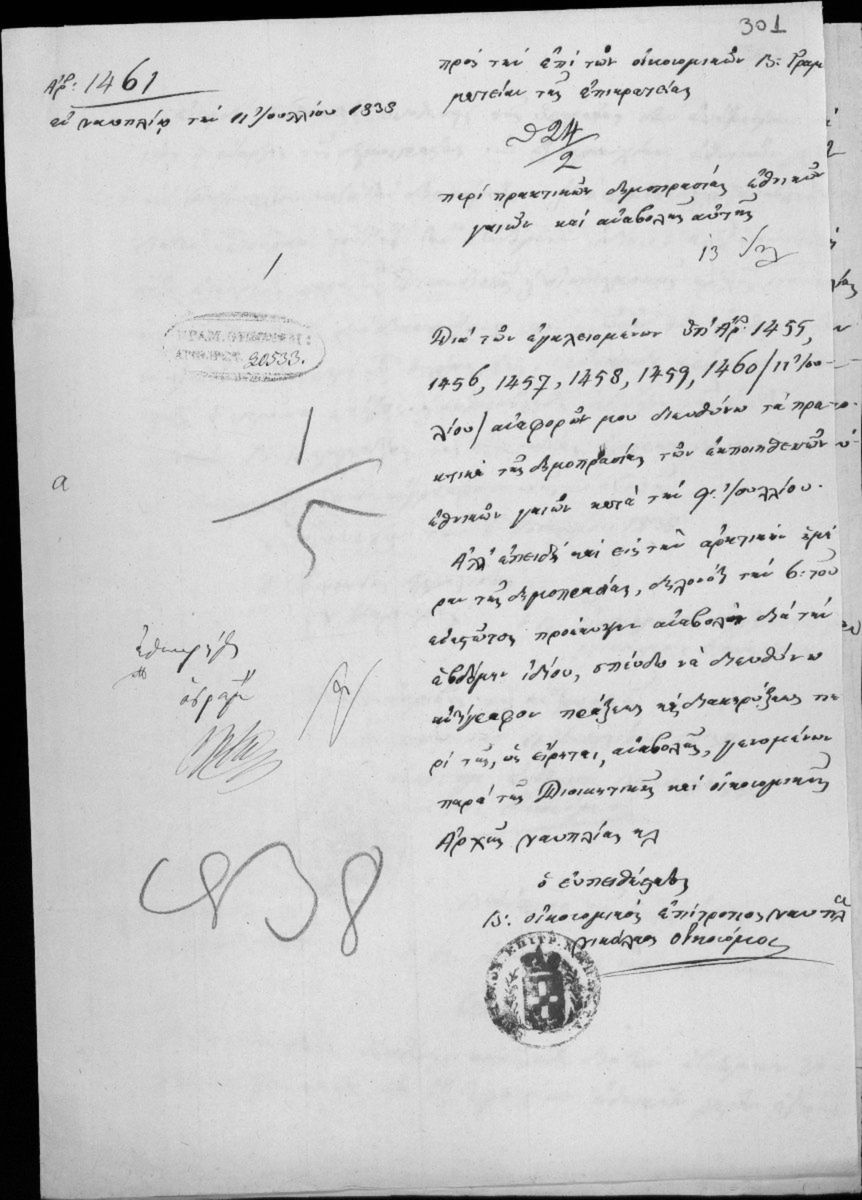 301
Ἀρ: 1461
ἐν Ναυπλίῳ τὴν 11 Ἰουλλίου 1838
πρὸς τὴν ἐπὶ τῶν οἰκονομικῶν Β: Γραμ
ματείαν τῆς ἐπικρατείας
24/2
περὶ πρακτικῶν δημοπρασίας ἐθνικῶν
γαιῶν καὶ ἀναβολῆς αὐτῆς
13
20533.
Διὰ τῶν ἐγκλειομένων ὑπ' Ἀρ. 1455,
1456, 1457, 1458, 1459, 1460/11 Ἰου-
λίου/ ἀναφορῶν μου διευθύνω τὰ πρα-
κτικὰ τῆς δημοπρασίας τῶν ἐκποιηθεισῶν
ἐθνικῶν γαιῶν κατὰ τὴν Ἰουλλίου.
Ἀλλ' ἐπειδὴ καὶ εἰς τὴν ἀρκτικὴν ἡμέ
ραν τῆς δημοπρασίας, δηλονότι τὴν 6: τοῦ
ἐνεστῶτος προέκυψεν ἀναβολὴ διὰ τὴν
ἑβδόμην ἰδίου, σπεύδω νὰ διευθύνω
ἀντίγραφον πράξεως καὶ διακηρύξεως πε
ρὶ τῆς, ὡς εἴρηται, ἀναβολῆς, γενομένων
παρὰ τῆς Διοικητικῆς καὶ οἰκονομικῆς
Ἀρχῆς Ναυπλίας κλ
ὁ εὐπειθέστατος
Β: οἰκονομικὸς ἐπίτροπος Ναυπλ
Νικόλαος Οἰκονόμος
1/5
α
938